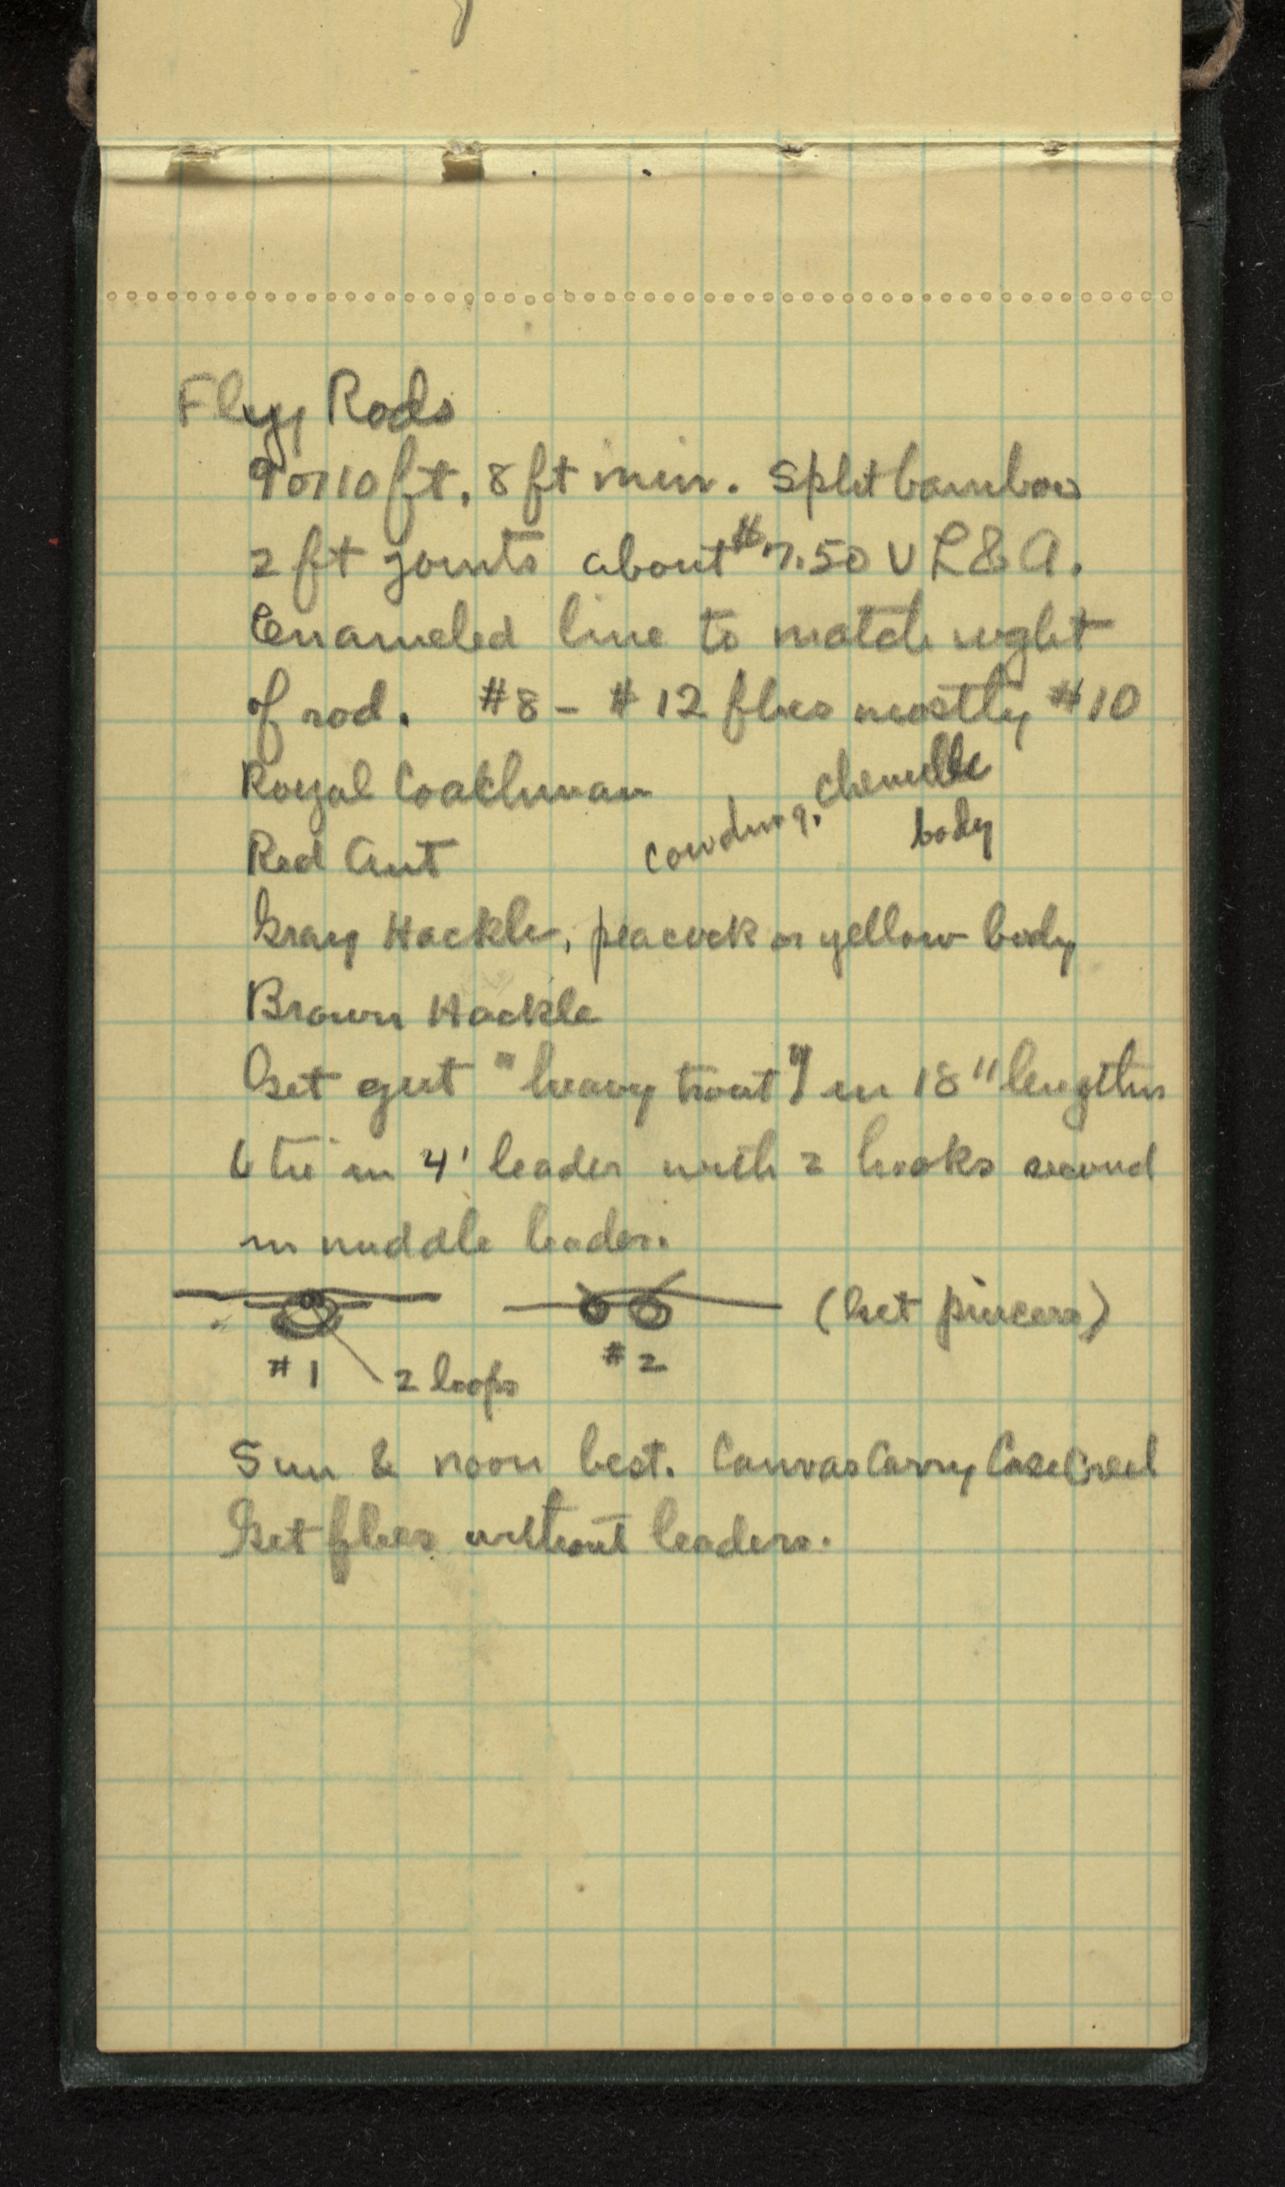 Fly Rods
9 or 10 ft, 8 ft min. Split bamboo
2 ft joints about $7.50 V L & A.
Enameled line to match wght
of rod. #8 - #12 flies mostly #10
Royal Coachman
Red Ant cowdung, chenille
body
Gray Hackle, peacock or yellow body
Brown Hackle
Get gut "heavy trout" in 18" lengths
& tie in 4' leader with 2 hooks second
in middle leader.
(Get pincers)
#1 2 loops #2
Sun & noon best. Canvas Carry Case Creel
Get flies without leaders.